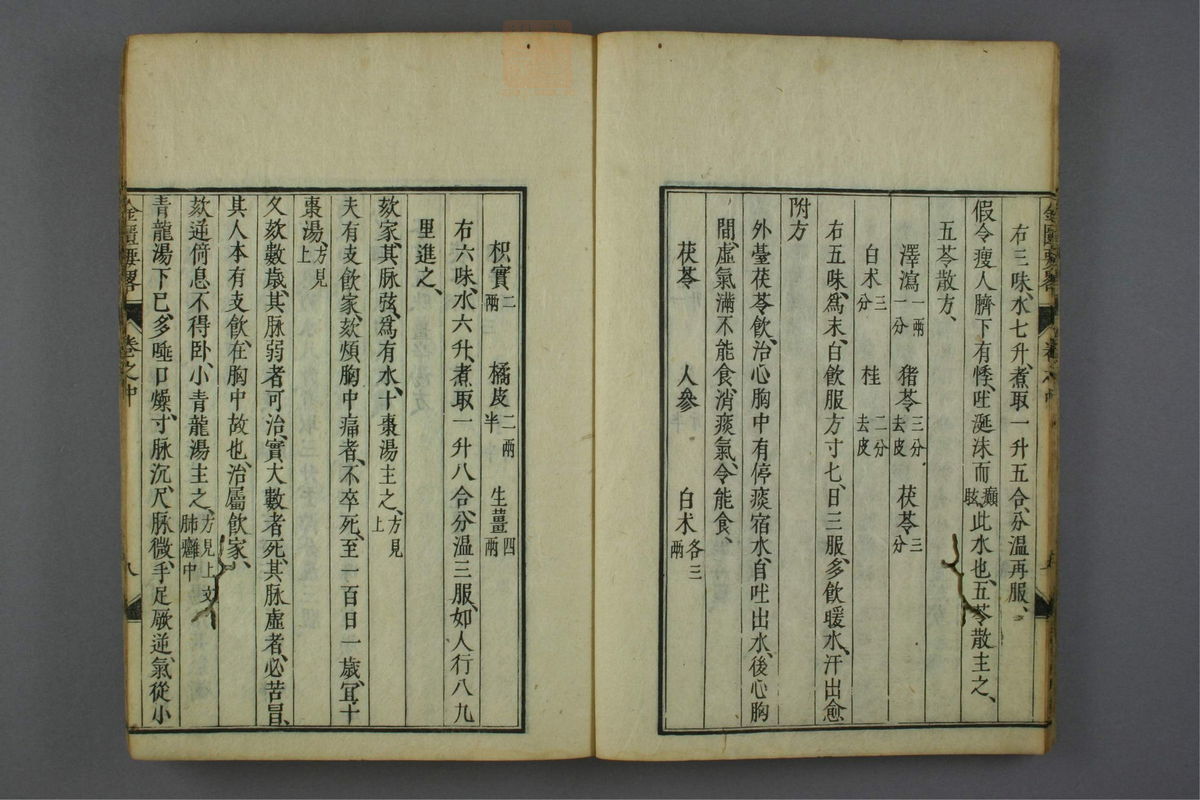 右三味、水七升、煮取一升五合、分溫再服、
假令瘦人臍下有悸、吐涎沫而癲眩、此水也、五苓散主之、
五苓散方、
澤瀉一兩一分 猪苓三分去皮 茯苓三分
白朮三分 桂二分去皮
右五味、為末、白飲服方寸匕、日三服、多飲暖水、汗出愈
附方
外臺茯苓飲、治心胸中有停痰宿水、自吐出水、後心胸
間、虛氣滿不能食、消痰氣、令能食、
茯苓 人參 白朮各三兩
枳實二兩 橘皮二兩半 生薑四兩
右六味、水六升、煮取一升八合、分溫三服、如人行八九
里進之、
欬家、其脉弦、為有水、十棗湯主之、方見上
夫有支飲家、欬煩胸中痛者、不卒死、至一百日一歲、宜十
棗湯、方見上
久欬數歲、其脉弱者可治、實大數者死、其脉虛者、必苦冒、
其人本有支飲、在胸中故也、治屬飲家、
欬逆倚息不得臥、小青龍湯主之、方見上文肺癰中
青龍湯下已、多唾口燥、寸脉沉、尺脉微、手足厥逆、氣從小
金匱要略 卷之中 八